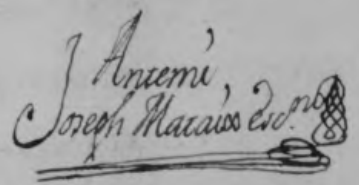 Antemi
Joseph Mataiss esc.no